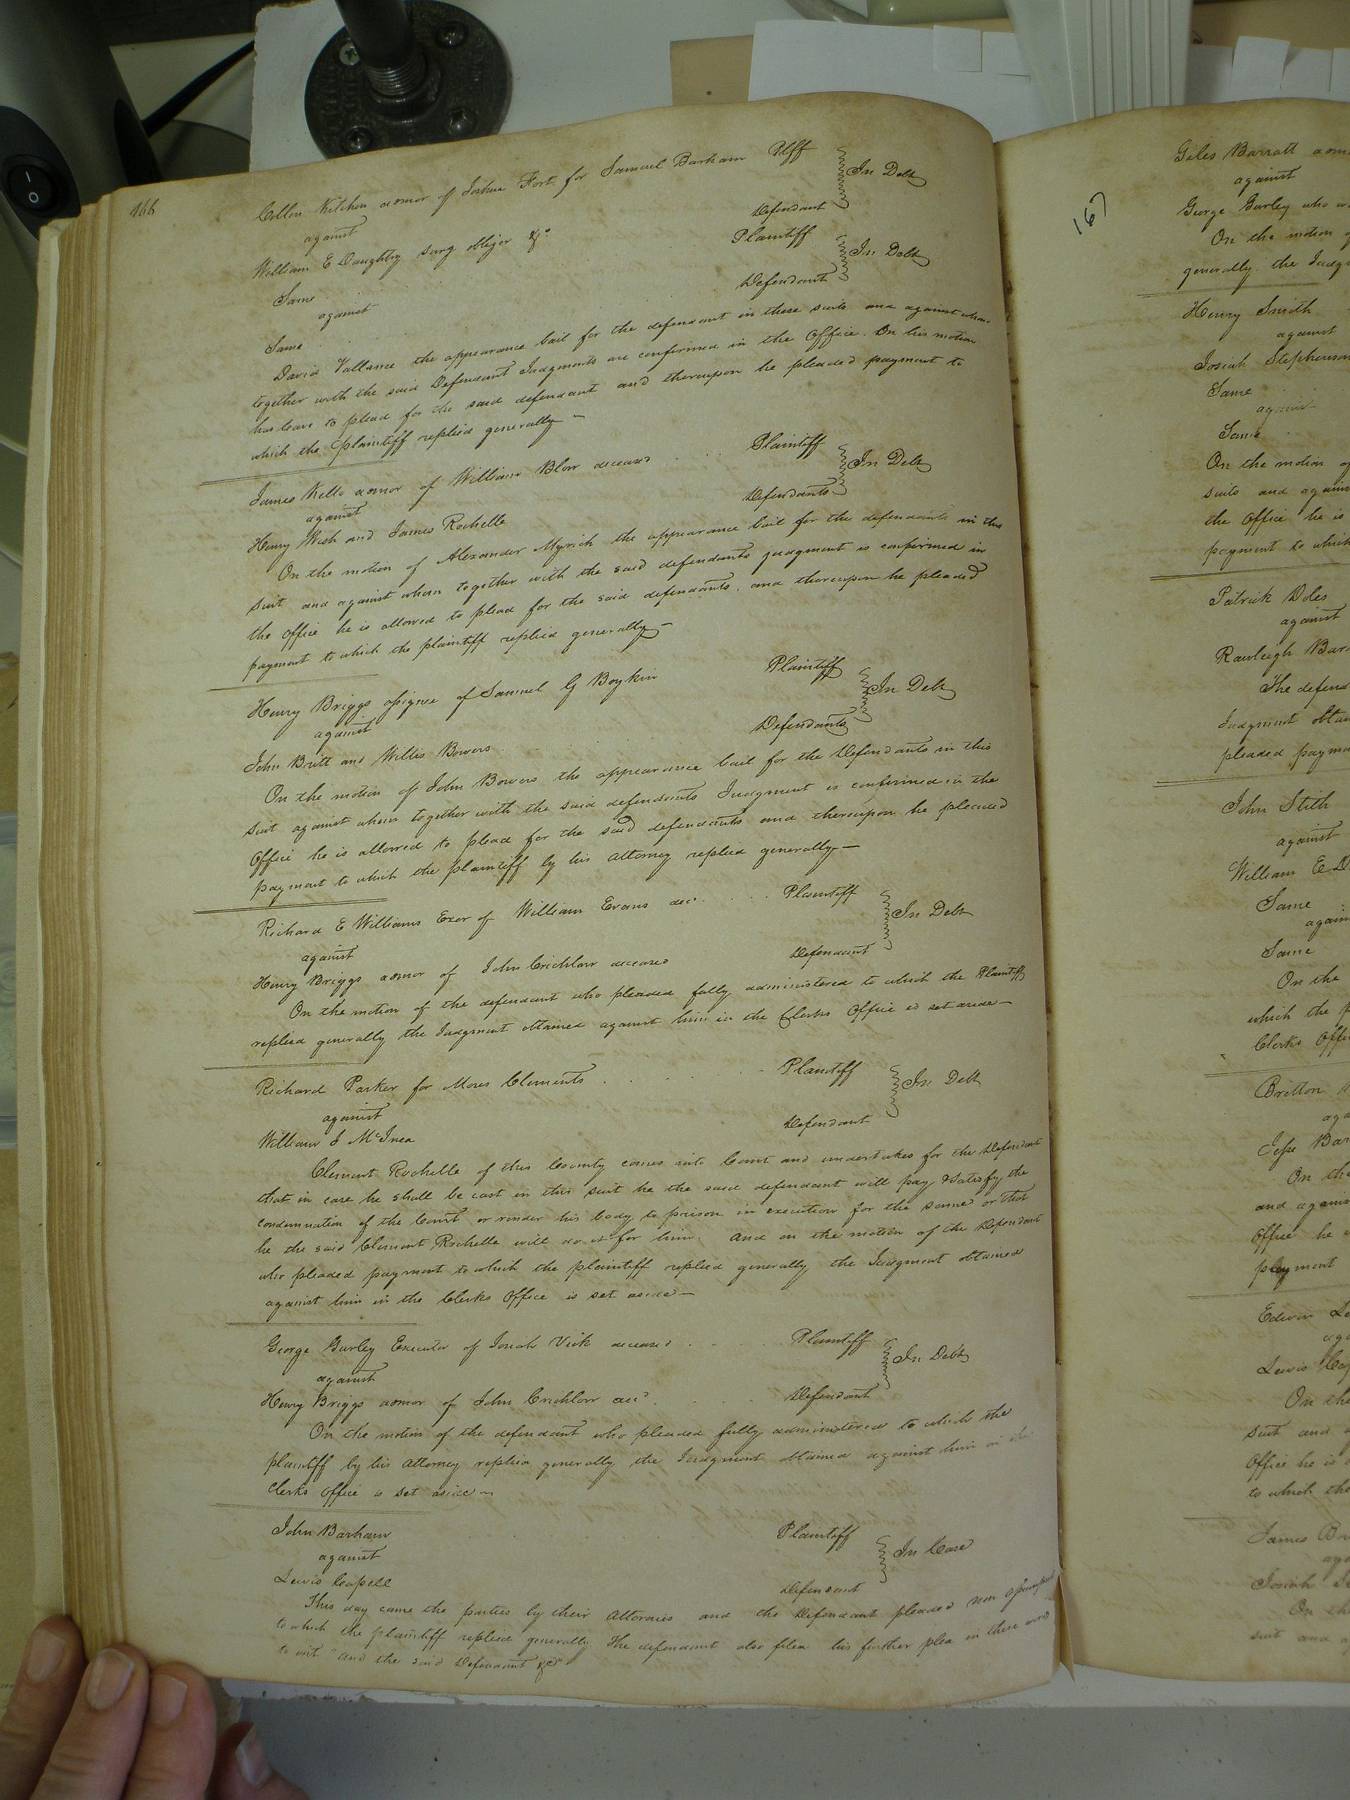 166
Kitchen admor of Joshua Fort for Samuel Barham Plff
against In Debt
William E Daughtry surg obligor &c Defendant
Same Plaintiff
against In Debt
Same Defendant
David Vallance the appearance bail for the defendant in these suits and against whom
together with the said Defendant Judgments are confirmed in the Office. On his motion
has leave to plead for the said defendant and thereupon he pleaded payment to
which the plaintiff replied generally —
James Kello admor of William Blow deceased Plaintiff
against In Debt
Henry Wish and James Rochelle Defendants
On the motion of Alexander Myrick the appearance bail for the defendants in this
suit and against whom together with the said defendants judgment is confirmed in
the office he is allowed to plead for the said defendants, and thereupon he pleaded
payment to which the plaintiff replied generally —
Henry Briggs assignee of Samuel G Boykin Plaintiff
against In Debt
John Britt and Willis Bowers Defendants
On the motion of John Bowers the appearance bail for the Defendants in this
suit against whom together with the said defendants Judgment is confirmed in the
Office he is allowed to plead for the said defendants and thereupon he pleaded
payment to which the plaintiff by his attorney replied generally —
Richard E Williams Exor of William Evans dec Plaintiff
against In Debt
Henry Briggs admor of John Crichlow deceased Defendant
On the motion of the defendant who pleaded fully administered to which the Plaintiff
replied generally the Judgment obtained against him in the Clerks Office is set aside —
Richard Parker for Moses Clements Plaintiff
against In Debt
William J Defendant
Clement Rochelle of this County comes into Court and undertakes for the Defendant
that in case he shall be cast in this suit he the said defendant will pay & satisfy the
condemnation of the Court or render his body to prison in execution for the same or that
he the said Clement Rochelle will do it for him. And on the motion of the Defendant
who pleaded payment to which the plaintiff replied generally the Judgment obtained
against him in the Clerks Office is set aside —
George Gurley Executor of Josiah Vick deceased Plaintiff
against In Debt
Henry Briggs admor of John Crichlow decd Defendant
On the motion of the defendant who pleaded fully administered to which the
plaintiff by his attorney replied generally the Judgment obtained against him in the
Clerks Office is set aside —
John Barham Plaintiff
against In Case
Lewis Capell Defendant
This day came the parties by their Attornies and the Defendant pleaded non assumpsit
to which the plaintiff replied generally. The defendant also filed his further plea in these words
to wit "and the said Defendant &c"
167
Giles Barratt
against
George Gurley who
On the motion
generally the
Henry Smith
against
Josiah Stephenson
Same
against
Same
On the motion of
suits and against
the Office he is
payment to which
Patrick Doles
against
Rawleigh
The
Judgment
pleaded
John Stith
against
William E
Same
against
Same
On the
which the
Clerks Office
Britton
Jesse
On the
and against
Office he
payment
Edwin
Lewis
On the
suit and
Office he is
to which the
James
Josiah
On the
suit and